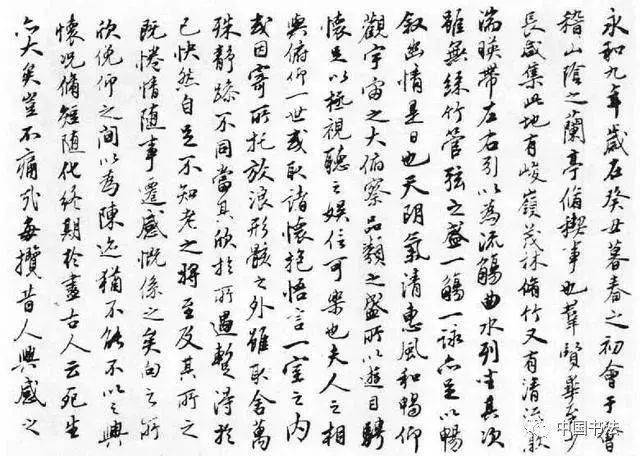 永和九年歲在癸丑暮春之初會于會
稽山陰之蘭亭脩禊事也羣賢畢至少
長咸集此地有峻嶺茂林脩竹又有清流激
湍暎帶左右引以為流觴曲水列坐其次
雖無絲竹管弦之盛一觴一詠亦足以暢
叙幽情是日也天朗氣清惠風和暢仰
觀宇宙之大俯察品類之盛所以遊目騁
懷足以極視聽之娛信可樂也夫人之相
與俯仰一世或取諸懷抱悟言一室之内
或因寄所托放浪形骸之外雖取舍萬
殊静躁不同當其欣於所遇暫得於
己快然自足不知老之將至及其所之
既惓情隨事遷感慨係之矣向之所
欣俛仰之間以為陳迹猶不能不以之興
懷況脩短隨化終期於盡古人云死生
亦大矣豈不痛哉每攬昔人興感之
中国书法